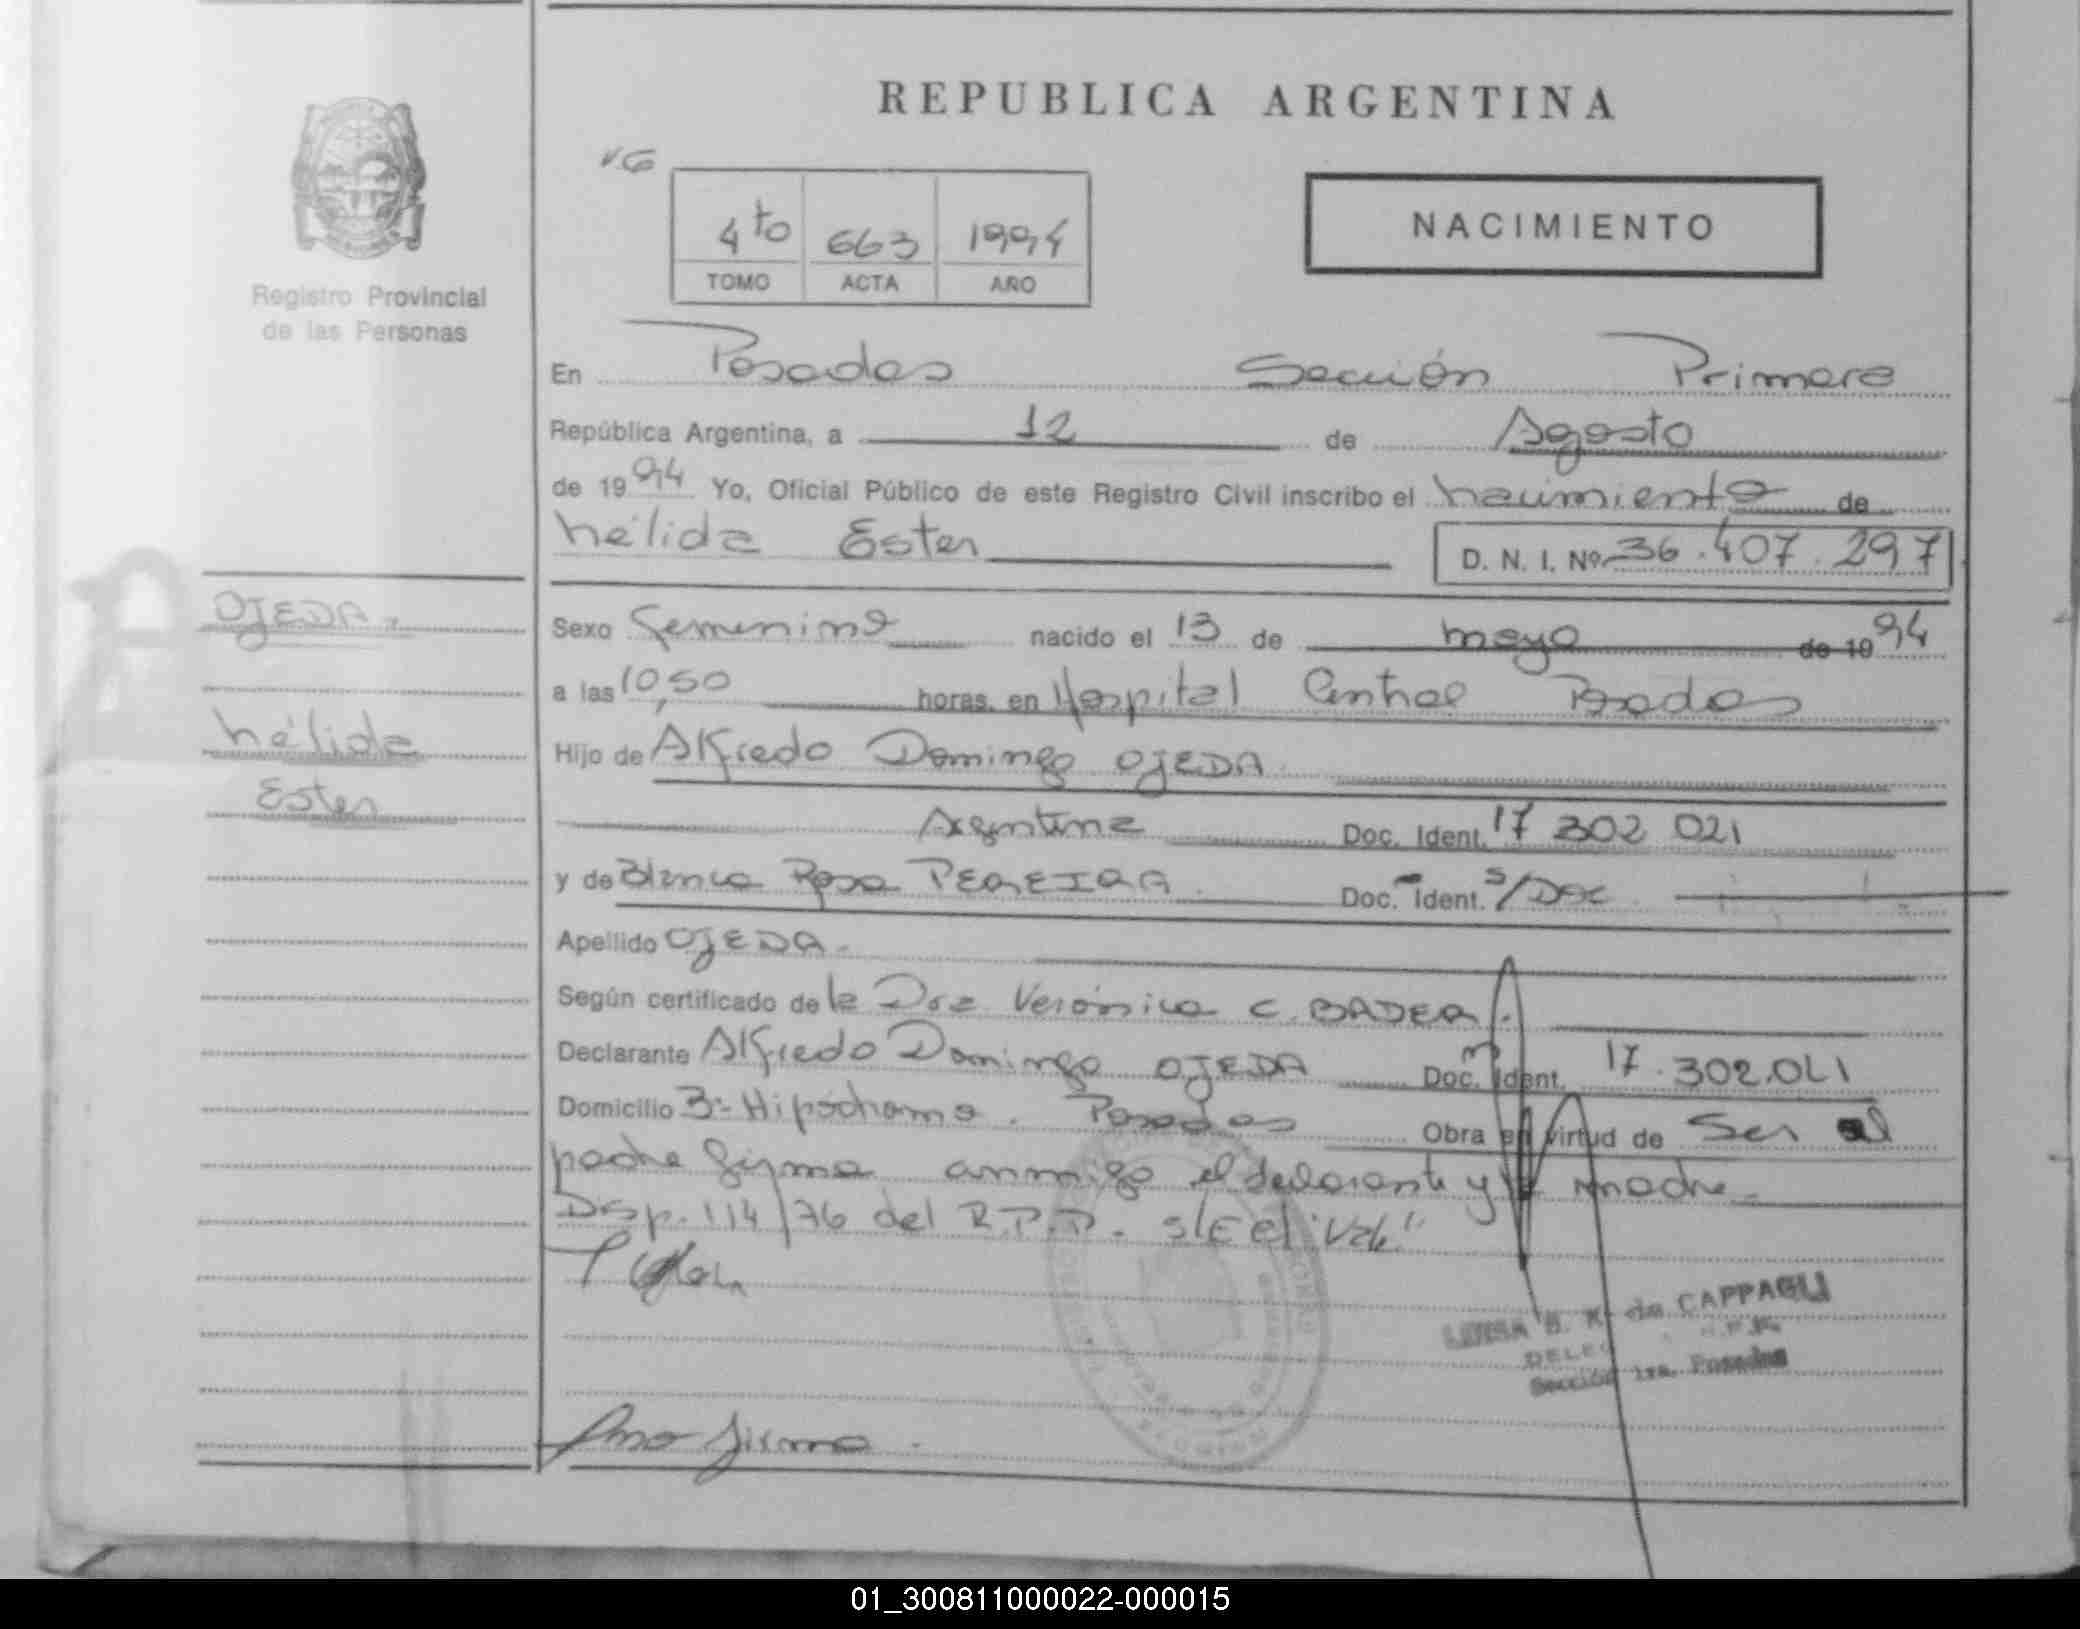 REPUBLICA ARGENTINA
VG
4to 663 1994
TOMO ACTA AÑO
NACIMIENTO
Registro Provincial
de las Personas
En Posadas Sección Primera
República Argentina, a 12 de Agosto
de 1994 Yo, Oficial Público de este Registro Civil inscribo el nacimiento de
Nélida Ester D. N. I. Nº 36.407.297
OJEDA.
Nélida
Ester
Sexo Femenino nacido el 13 de mayo de 1994
a las 10,50 horas, en Hospital Central Posadas
Hijo de Alfredo Domingo OJEDA
Argentina Doc. Ident. 17 302 021
y de Blanca Rosa PEREIRA Doc. Ident. S/Doc
Apellido OJEDA.
Según certificado de la Dra Verónica C. BADER.
Declarante Alfredo Domingo OJEDA Doc. Ident. 17.302.021
Domicilio Bº Hipódromo. Posadas Obra en virtud de Ser el
padre firma conmigo el declarante y la madre.
Disp. 114/76 del R.P.P. s/E el "Vale"
CAPPAGLI
Sección 1ra. Posadas
No firma.
01_300811000022-000015